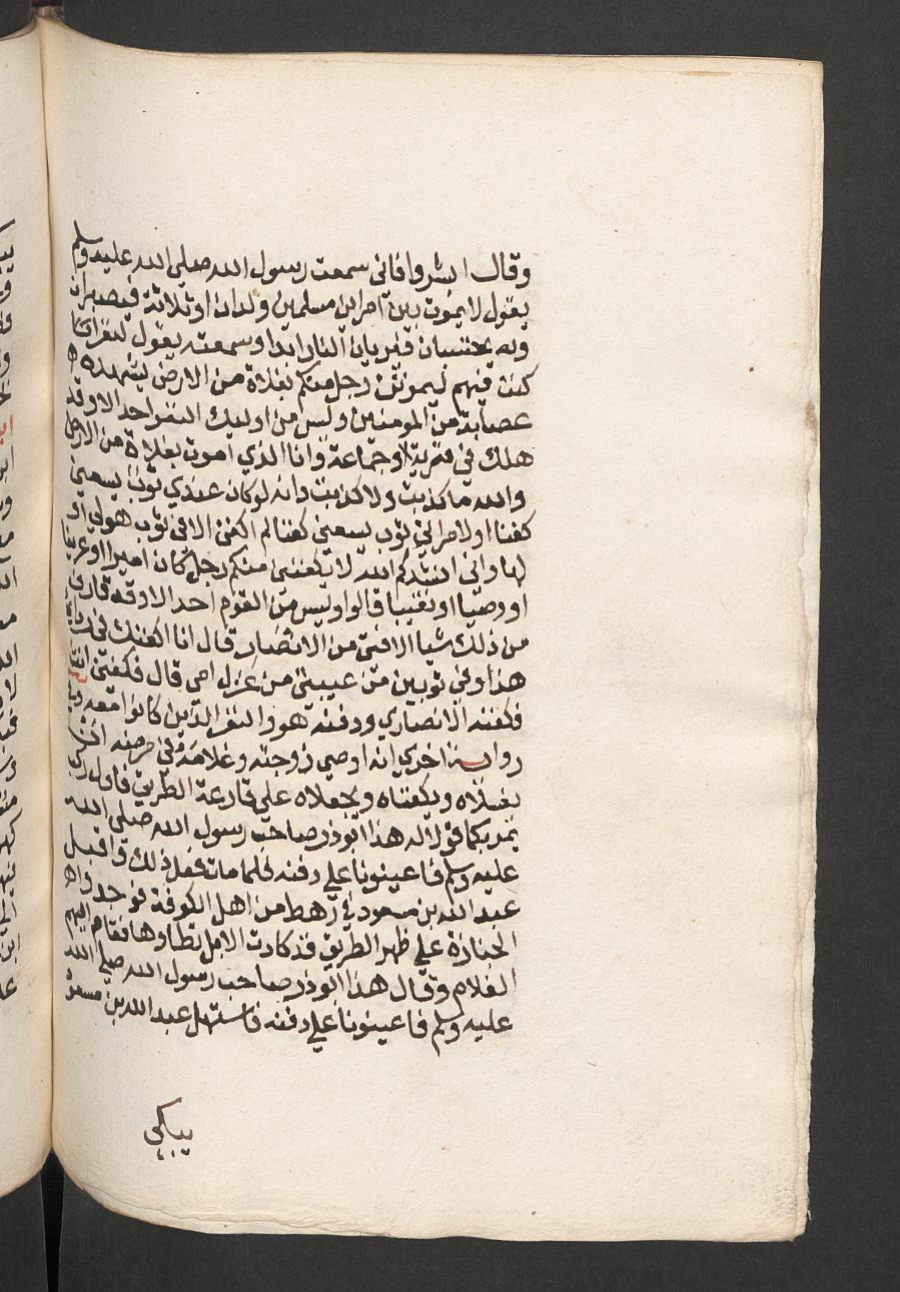 وقال ابشروا فاني سمعت رسول الله صلي الله عليه وسلم
يقول لا يموت بين امراين مسلمين ولدان او ثلاثة فيصبران
وله يحتسبان فيريان النار ابدا وسمعته يقول لنفر انا
كنت فيهم ليموتن رجل منكم بفلاة من الارض يشهده
عصابة من المومنين وليس من اوليك النفر احد الا وقد
هلك في قرية او جماعة وانا الذي اموت بفلاة من الارض
والله ما كذبت ولا كذبت وانه لو كان عندي ثوب يسعني
كفنا او لامراتي ثوب يسعني كفنا لم اكفن الا في ثوب هو لي او
لها واني انشدكم الله لا يكفنني منكم رجل كان اميرا او عريفا
او وصيا او نقيبا قالوا وليس من القوم احد الا وقد قارف
من ذلك شيا الا فتي من الانصار قال انا اكفنك في رداي
هذا وفي ثوبين من عيبتي من غزل امي قال فكفني انت
فكفنه الانصاري ودفنه هو والنفر الذين كانوا معه وفي
رواية اخري انه اوصي زوجته وغلامه في مرضه ان
يغسلاه ويكفناه ويجعلاه علي قارعة الطريق فاول ركب
يمر بكما قولا له هذا ابو ذر صاحب رسول الله صلي الله
عليه وسلم فاعينونا علي دفنه فلما مات فعل ذلك واقبل
عبد الله بن مسعود في رهط من اهل الكوفة فوجدوا
الجنازة علي ظهر الطريق قد كادت الابل تطاوها فقام اليهم
الغلام وقال هذا ابو ذر صاحب رسول الله صلي الله
عليه وسلم فاعينونا علي دفنه فاستهل عبد الله بن مسعود
يبكي